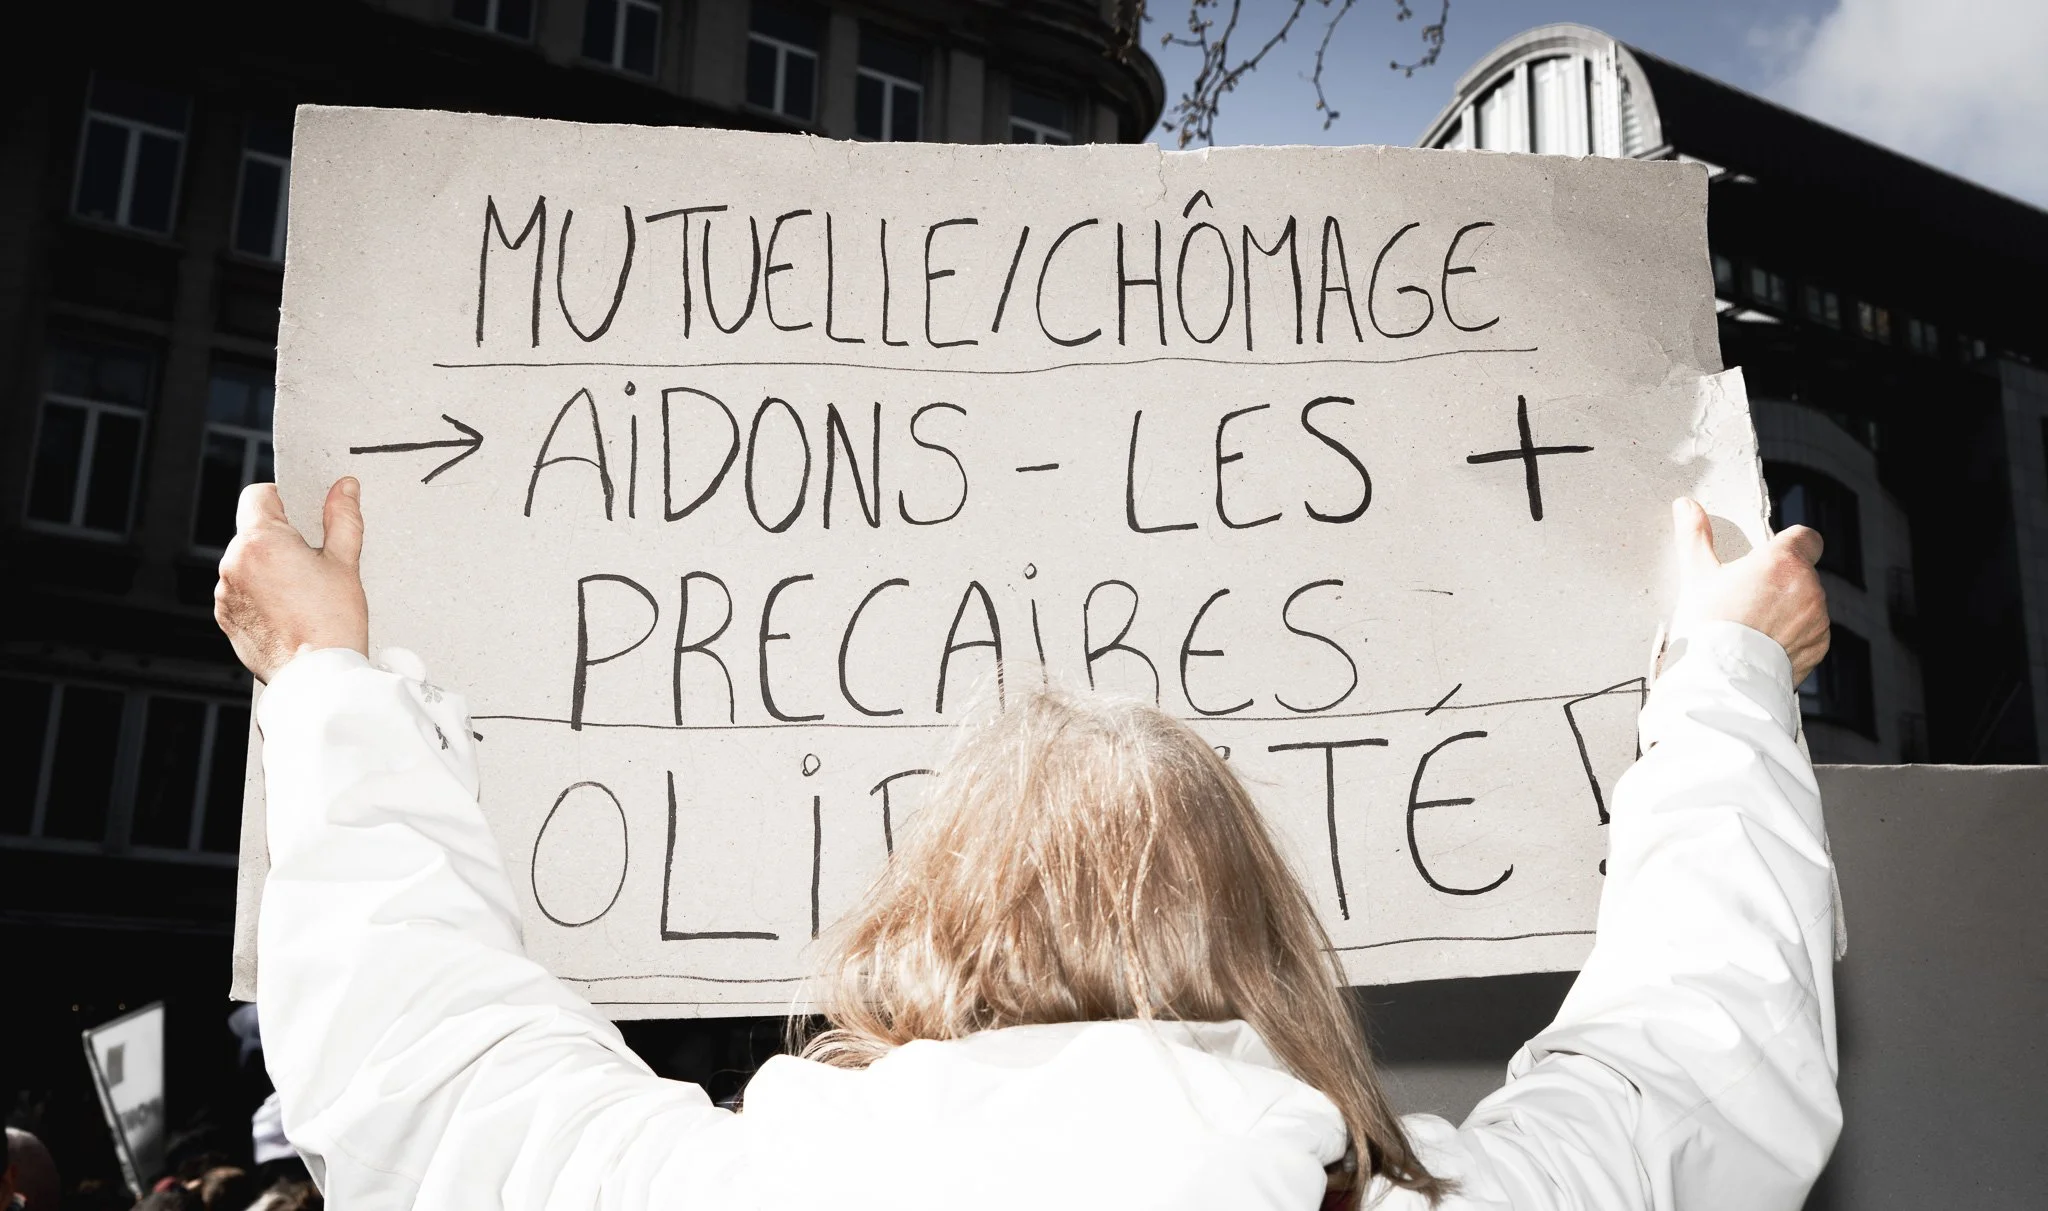 MUTUELLE/CHÔMAGE
→ AiDONS - LES +
PRECAiRES